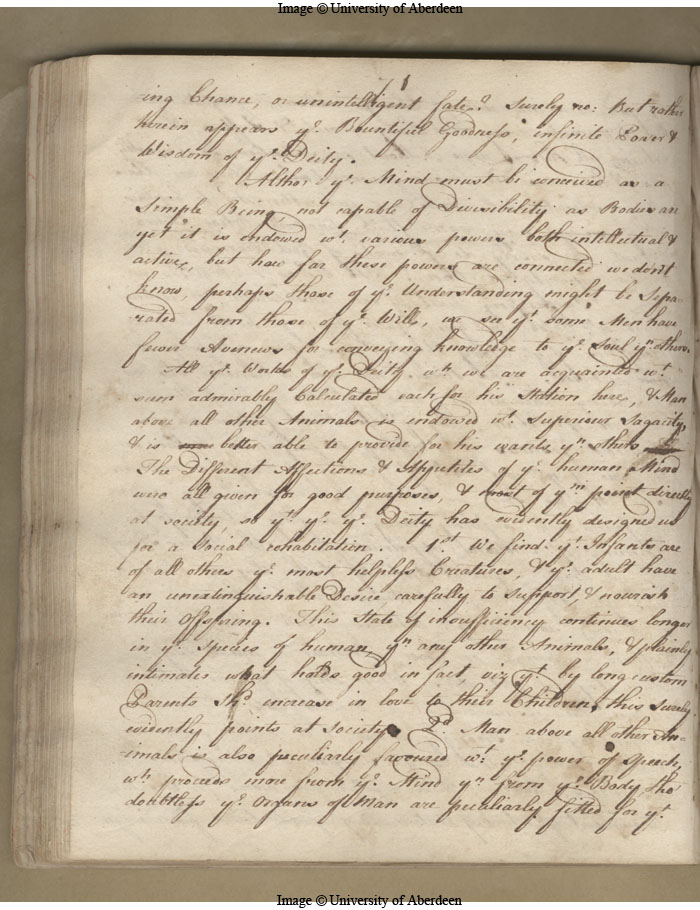 Image © University of Aberdeen
71
ing Chance, or unintelligent fate? Surely no: But rather
herein appears ye. Bountiful Goodness, infinite Power &
Wisdom of ye. Deity.
Altho' ye. Mind must be conceived as a
simple Being, not capable of Divisibility as Bodies are
yet it is endowed wt. various powers both intellectual &
active, but how far these powers are connected we don't
know, perhaps those of ye. Understanding might be sepa-
rated from those of ye. Will, we see yt. some Men have
fewer Avenews for conveying knowledge to ye. soul yn. others.
All ye. Works of ye. Deity wh. we are acquainted wt.
seem admirably Calculated each for his Station here, & Man
above all other Animals is endowed wt. superiour Sagacity,
& is better able to provide for his wants yn. others
The Different Affections & Appetites of ye. human Mind
were all given for good purposes, & most of ym. point directly
at society, so yt. ye. ye. Deity has evidently designed us
for a social cohabitation. 1st. We find yt. Infants are
of all others ye. most helpless Creatures, & ye. adult have
an unextinguishable Desire carefully to support & nourish
their Offspring. This State of insufficiency continues longer
in ye. species of human, yn. any other Animals, & plainly
intimates what holds good in fact, viz yt. by long custom
Parents shd. increase in love to their Children, this surely
evidently points at society. 2. Man above all other An-
imals is also peculiarly favoured wt. ye. power of speech,
wh. proceeds more from ye. Mind yn. from ye. Body, tho'
doubtless ye. Organs of Man are peculiarly fitted for yt.
Image © University of Aberdeen